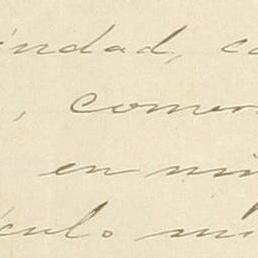 indad, c
, comer
en mi
ículo. mi